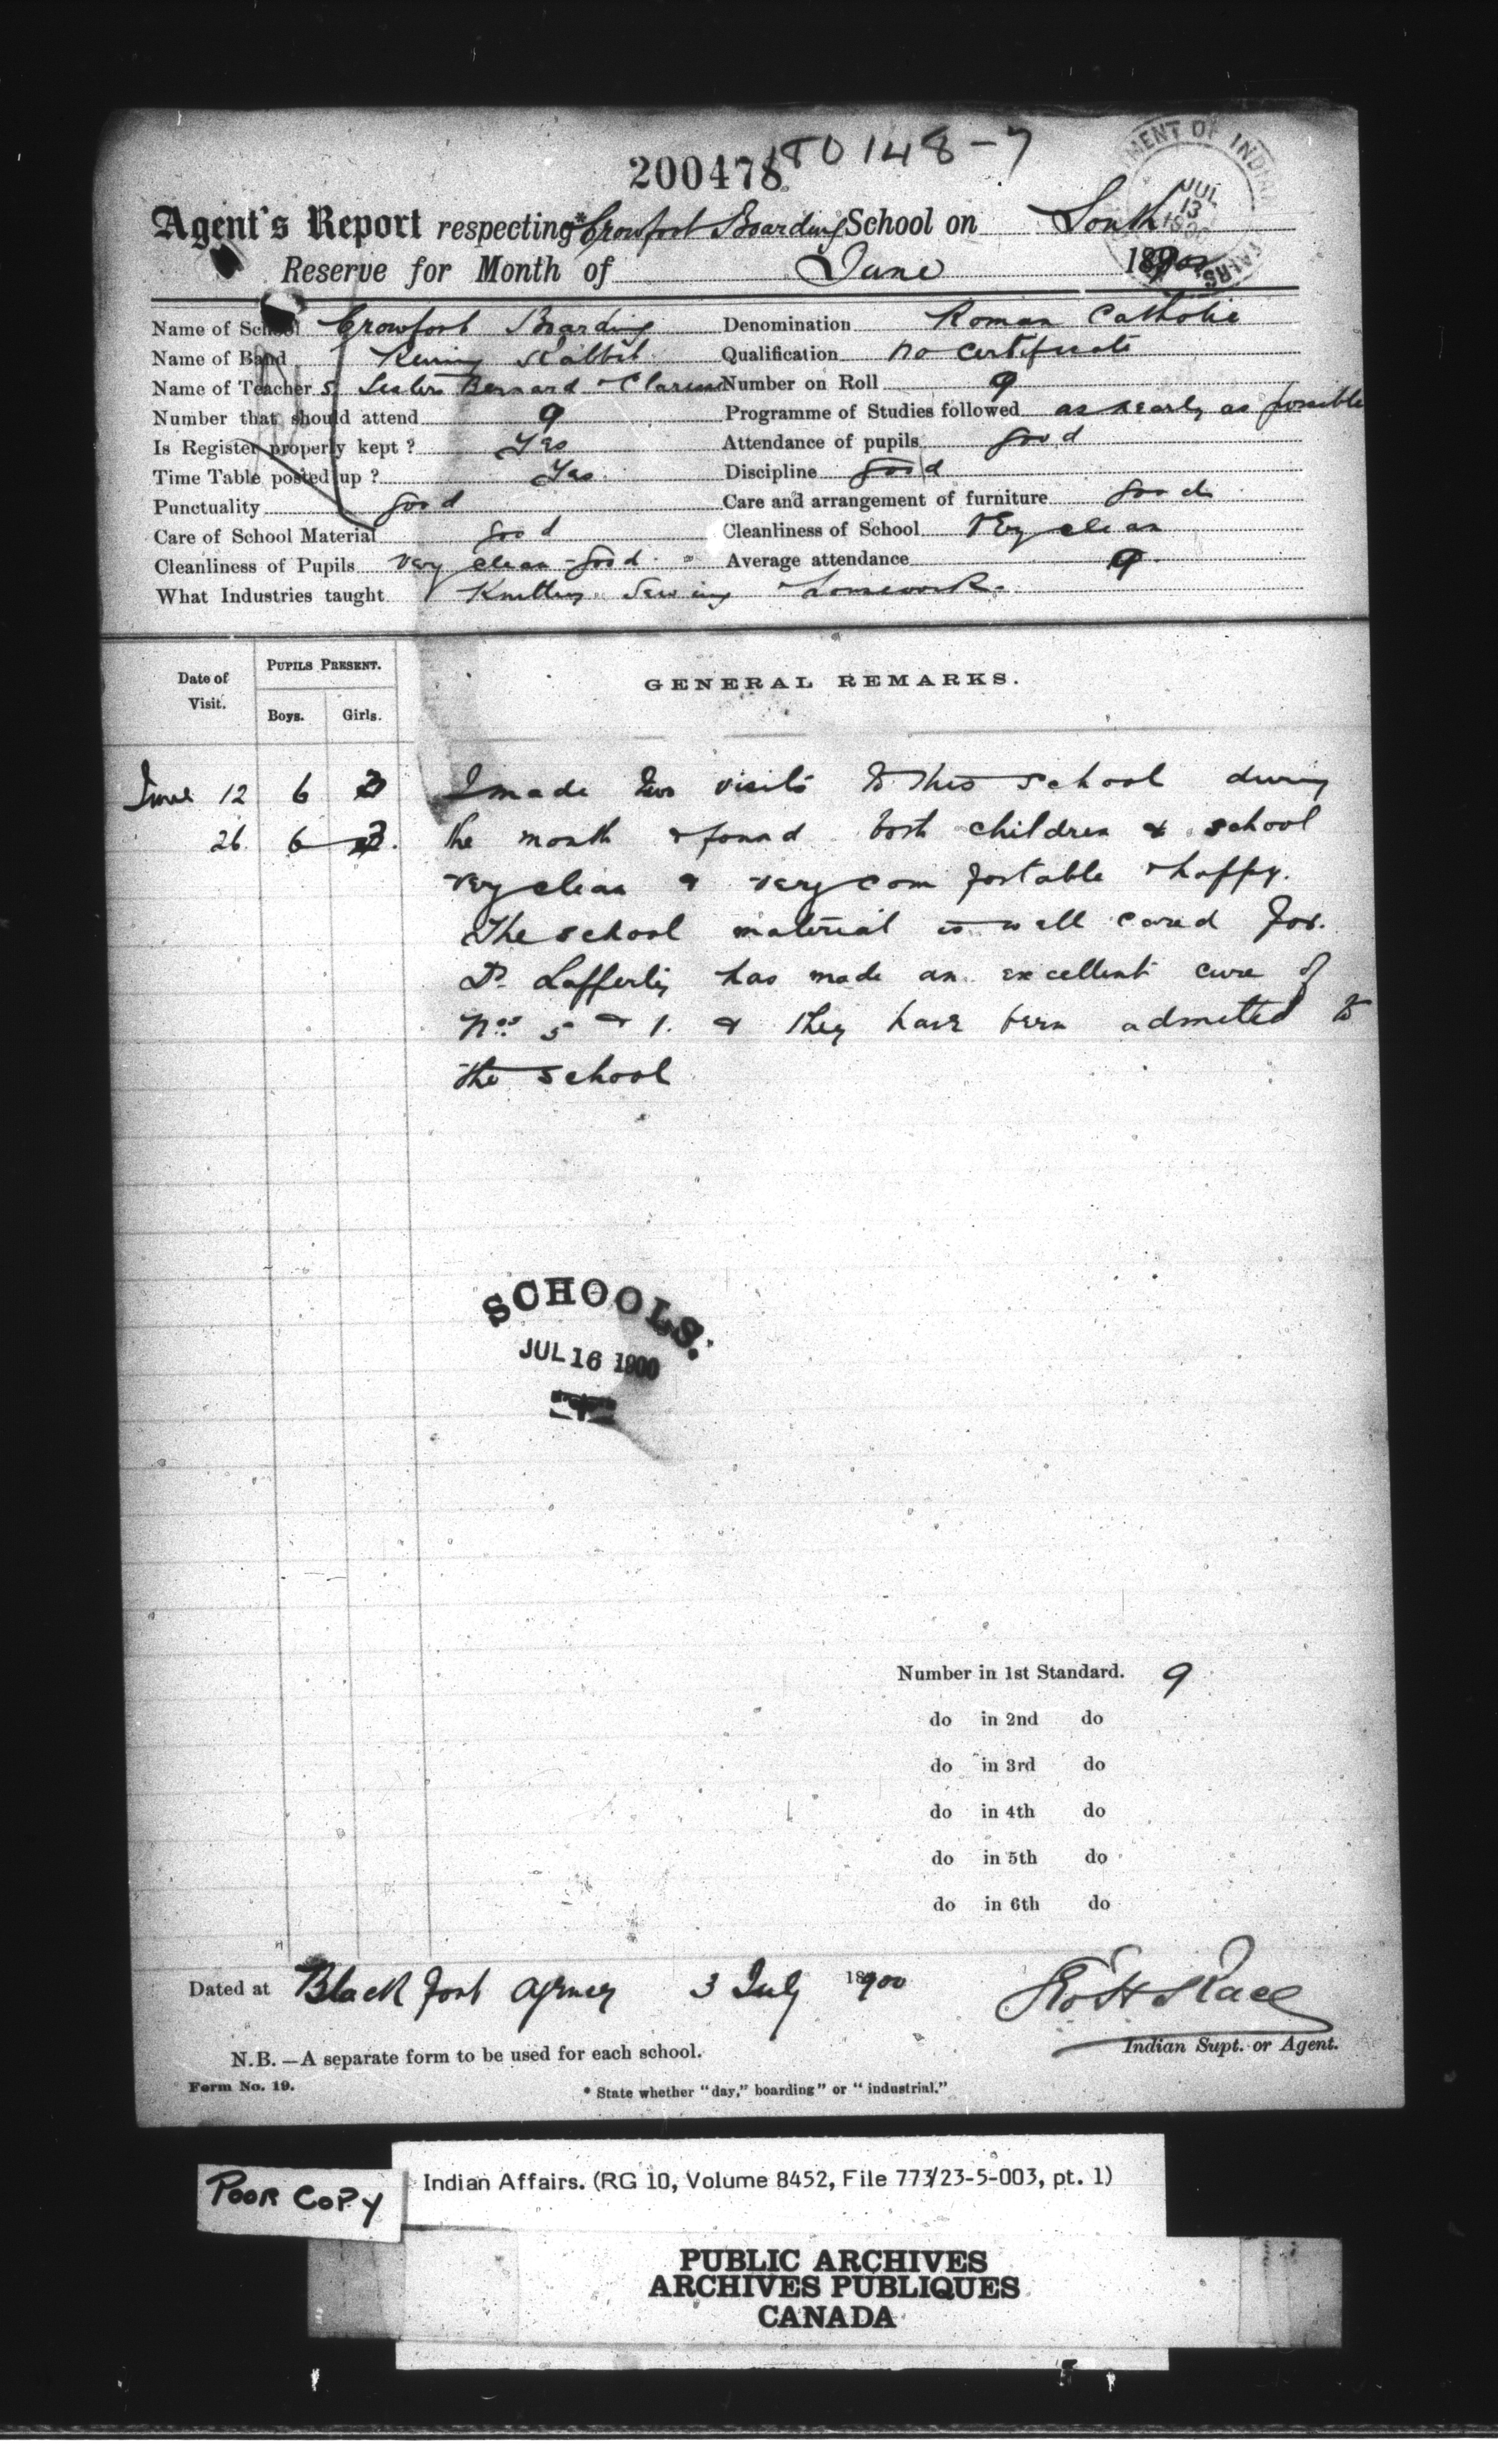 200478 180148-7
DEPARTMENT OF INDIAN AFFAIRS
JUL 13 1900
Agent's Report respecting* Crowfoot Boarding School on South
Reserve for Month of June 1900
Name of School Crowfoot Boarding Denomination Roman Catholic
Name of Band Running Rabbit Qualification no certificate
Name of Teacher s Sisters Bernard & Number on Roll 9
Number that should attend 9 Programme of Studies followed as nearly as possible
Is Register properly kept ? Yes Attendance of pupils good
Time Table posted up ? Yes. Discipline good
Punctuality good Care and arrangement of furniture good
Care of School Material good Cleanliness of School Very clean
Cleanliness of Pupils very clean - good Average attendance 9.
What Industries taught Knitting Sewing Housework.
Date of Visit. PUPILS PRESENT. Boys. Girls.
GENERAL REMARKS.
June 12 6 3 I made two visits to this school during
26 6 3. the month & found both children & school
very clean & very comfortable & happy.
The school material is well cared for.
Dr. Lafferty has made an excellent cure of
Nos 5 & 1. & they have been admitted to
the school
SCHOOLS.
JUL 16 1900
Number in 1st Standard. 9
do in 2nd do
do in 3rd do
do in 4th do
do in 5th do
do in 6th do
Dated at Blackfoot Agency 3 July 1900
Indian Supt. or Agent.
N.B.—A separate form to be used for each school.
Form No. 19.
* State whether "day," boarding" or "industrial."
POOR COPY
Indian Affairs. (RG 10, Volume 8452, File 773/23-5-003, pt. 1)
PUBLIC ARCHIVES
ARCHIVES PUBLIQUES
CANADA